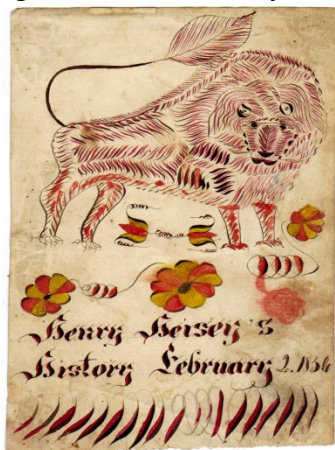 Henry Hersey's
History February 2.